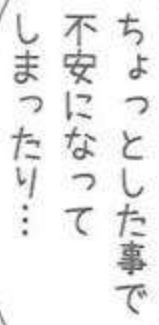 ちょっとした事で
不安になって
しまったり…